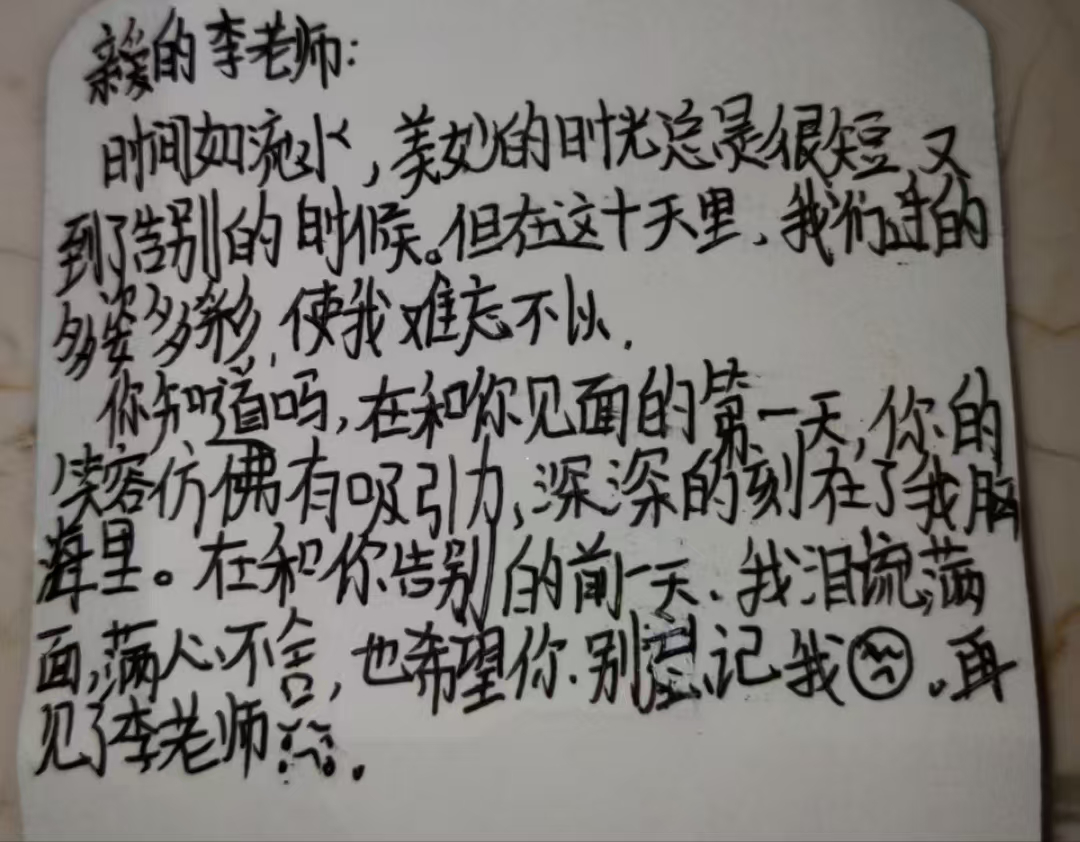 亲爱的李老师:
时间如流水,美妙的时光总是很短,又
到了告别的时候。但在这十天里,我们过的
多姿多彩,使我难忘不以.
你知道吗,在和你见面的第一天,你的
笑容仿佛有吸引力,深深的刻在了我脑
海里。在和你告别的前一天.我泪流满
面,满心不舍,也希望你.别忘记我☹.再
见了李老师.